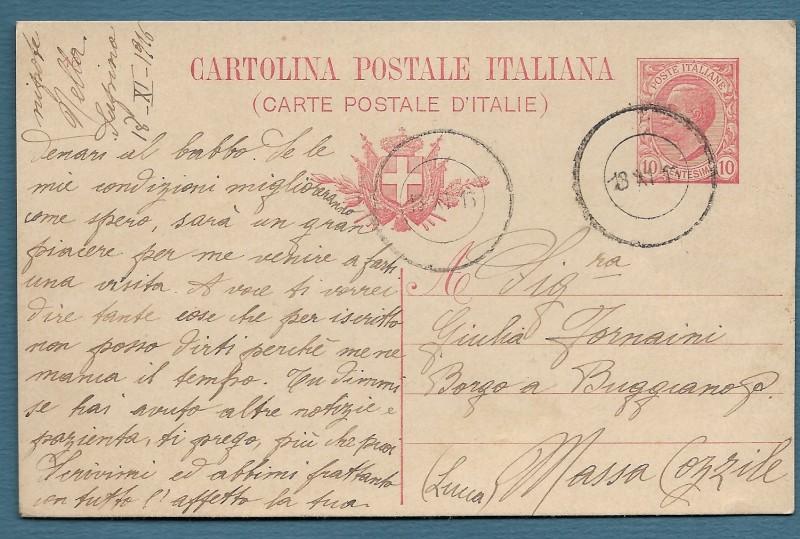 CARTOLINA POSTALE ITALIANA
(CARTE POSTALE D'ITALIE)
POSTE ITALIANE
10 CENTESIMI 10
denari al babbo. Se le
mie condizioni miglioreranno
come spero, sarà un gran
piacere per me venire a farti
una visita. A voce ti vorrei
dire tante cose che per iscritto
non posso dirti perchè me ne
manca il tempo. Tu dimmi
se hai avuto altre notizie e
pazienta, ti prego, più che puoi
Scrivimi ed abbimi frattanto
con tutto l'affetto la tua
nipote
Delia.
18-IX-1916
A Sig ra
Giulia Fornaini
Borgo a Buggiano p.
Massa Cozzile
(Lucca)